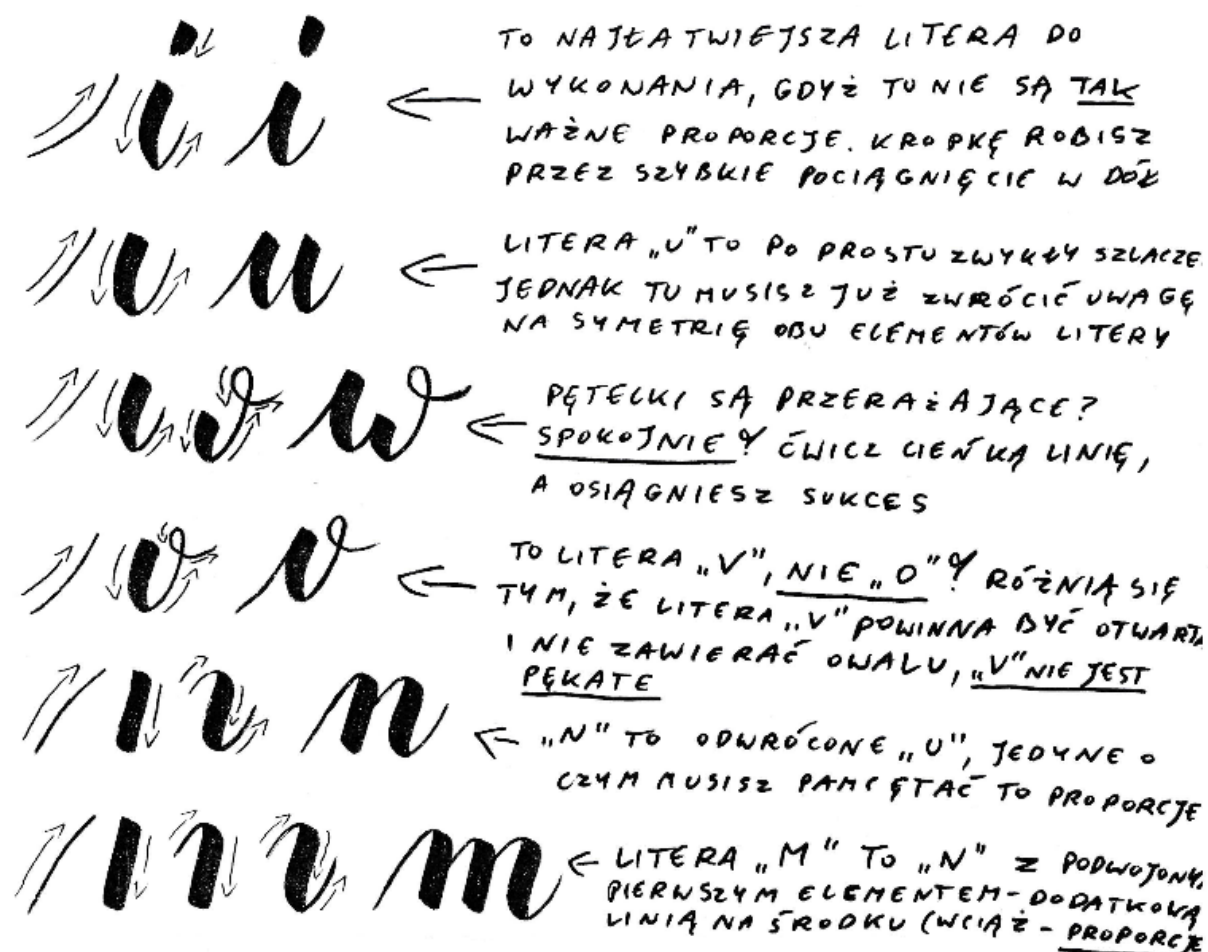 i i
TO NAJŁATWIEJSZA LITERA DO
WYKONANIA, GDYŻ TU NIE SĄ TAK
WAŻNE PROPORCJE. KROPKĘ ROBISZ
PRZEZ SZYBKIE POCIĄGNIĘCIE W DÓŁ
u u
LITERA „U" TO PO PROSTU ZWYKŁY SZLACZE
JEDNAK TU MUSISZ JUŻ ZWRÓCIĆ UWAGĘ
NA SYMETRIĘ OBU ELEMENTÓW LITERY
w w
PĘTELKI SĄ PRZERAŻAJĄCE?
SPOKOJNIE! ĆWICZ CIEŃKĄ LINIĘ,
A OSIĄGNIESZ SUKCES
v v
TO LITERA „V", NIE „O"! RÓŻNIĄ SIĘ
TYM, ŻE LITERA „V" POWINNA BYĆ OTWARTA
I NIE ZAWIERAĆ OWALU, „V" NIE JEST
PĘKATE
n n
„N" TO ODWRÓCONE „U", JEDYNE O
CZYM MUSISZ PAMIĘTAĆ TO PROPORCJE
m m
LITERA „M" TO „N" Z PODWOJONY
PIERWSZYM ELEMENTEM - DODATKOWĄ
LINIĄ NA ŚRODKU (WCIĄŻ - PROPORCJE